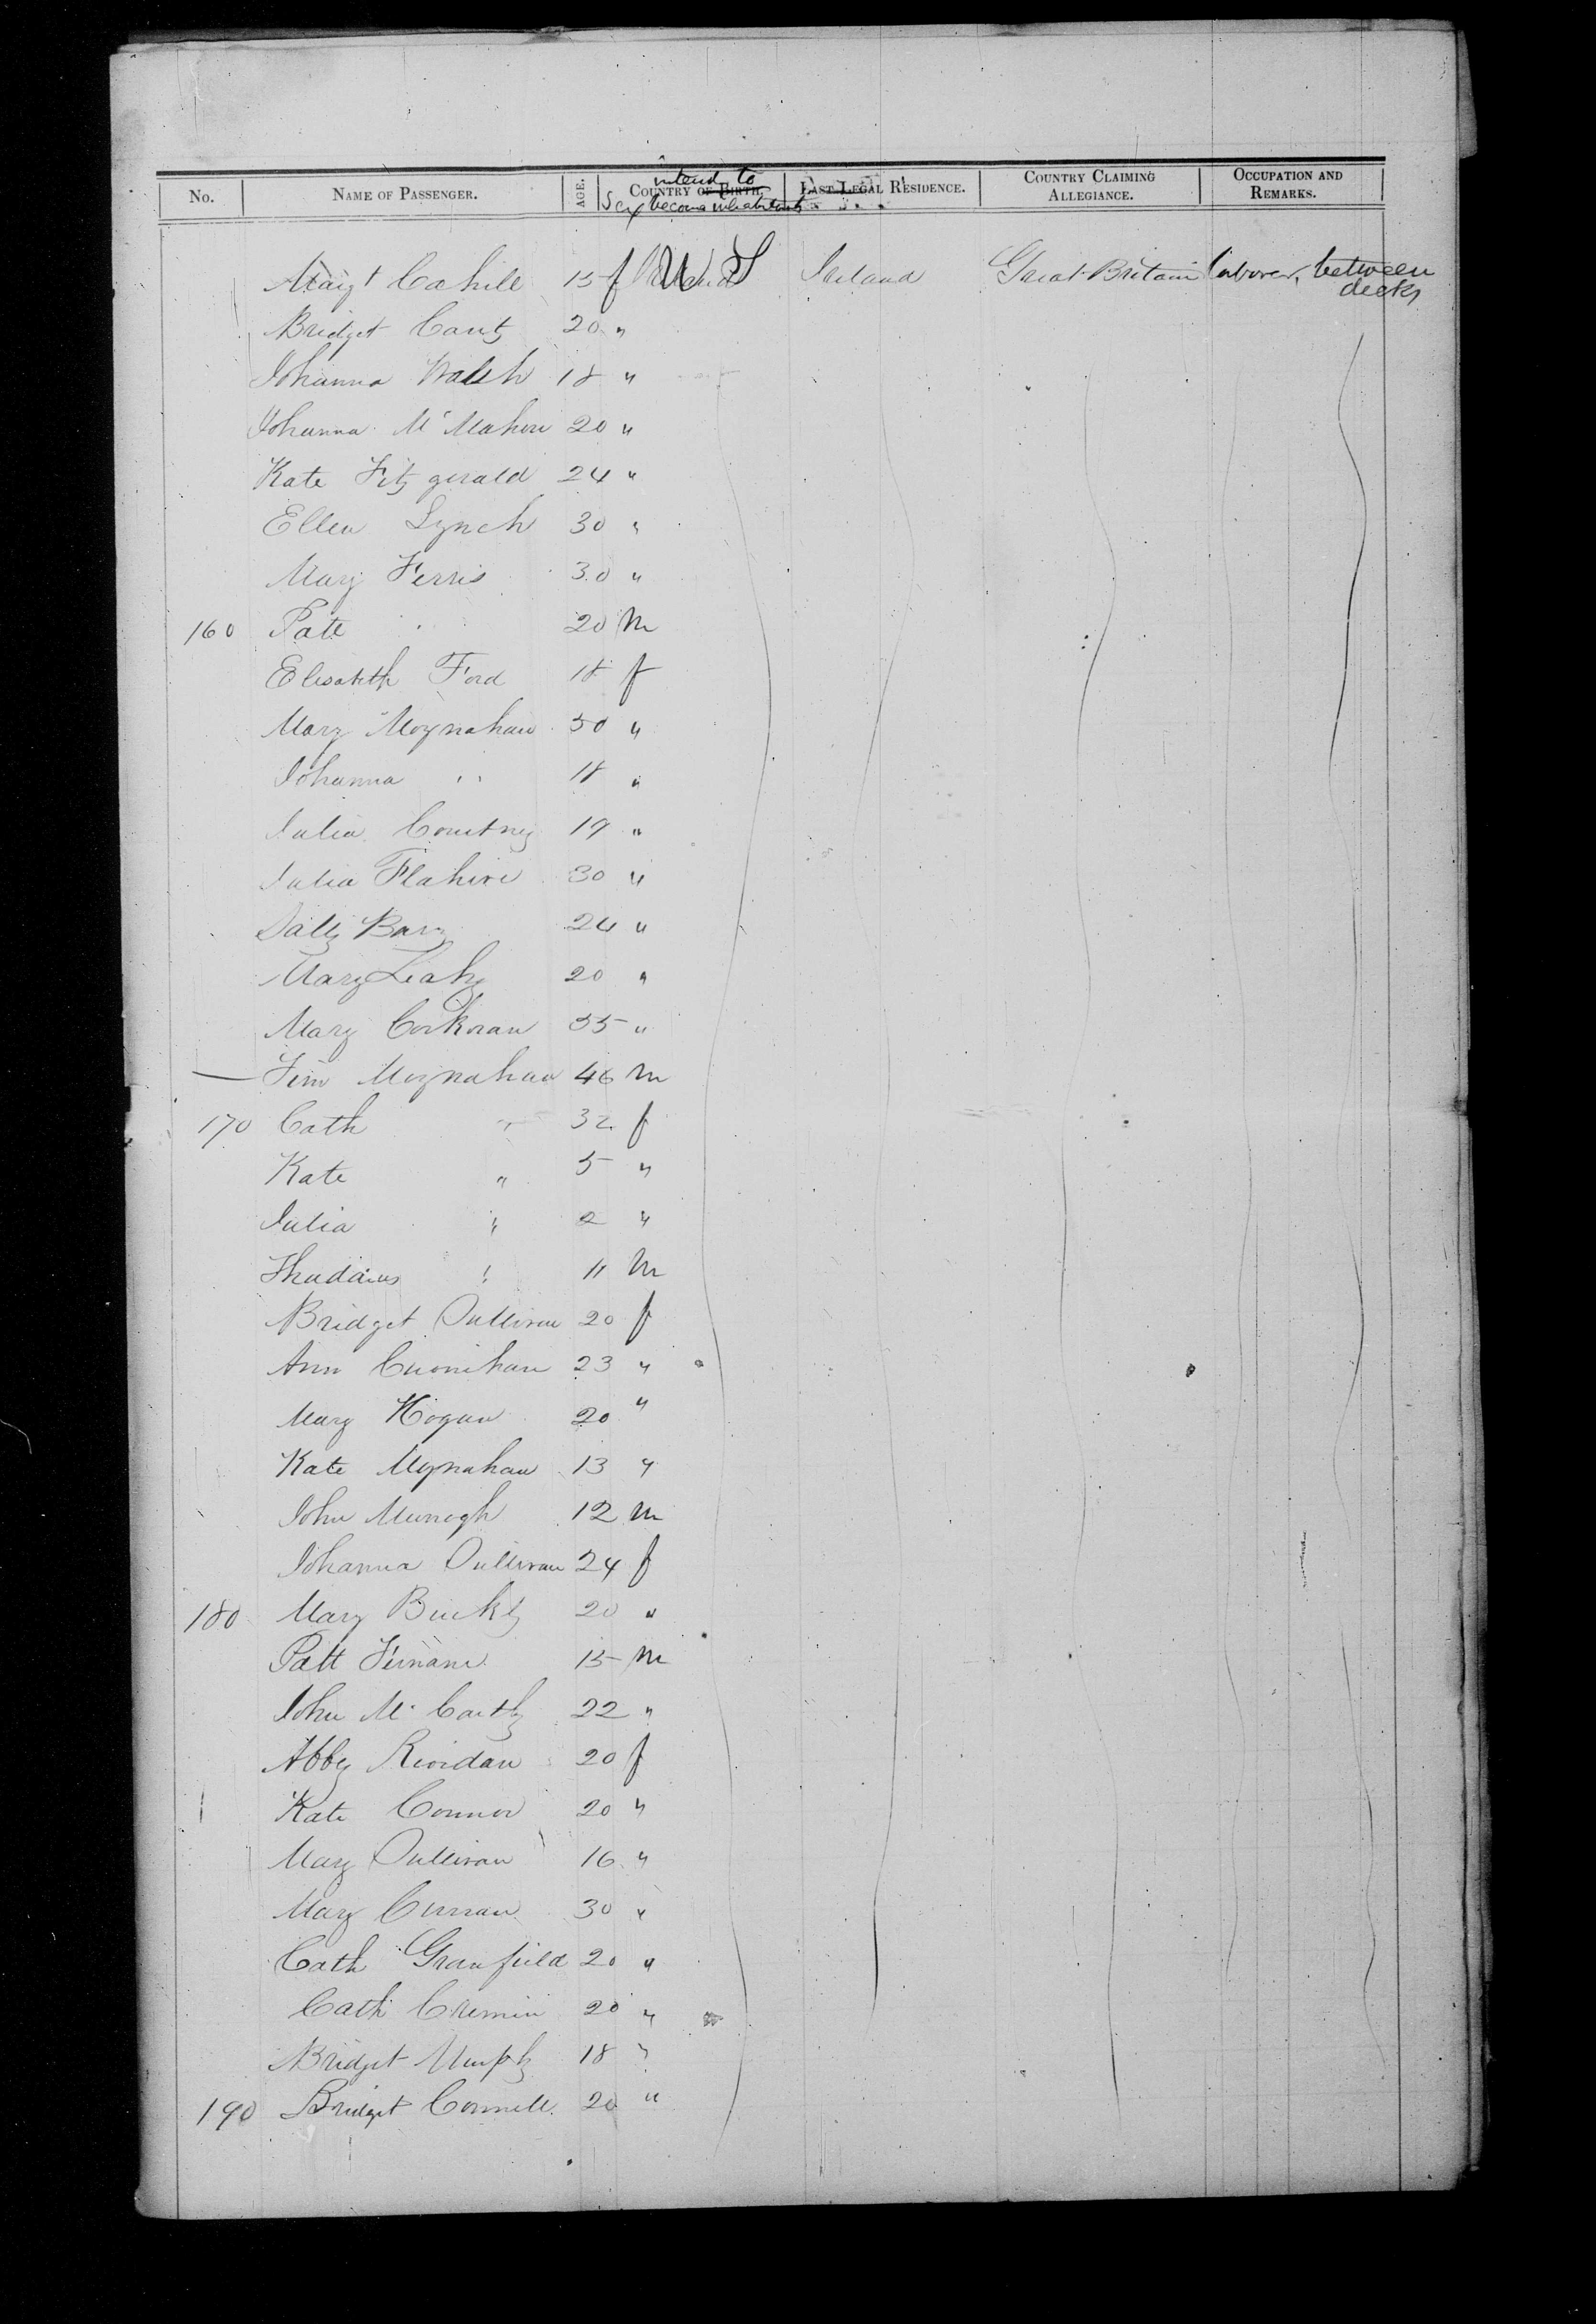 No. NAME OF PASSENGER. AGE. Sex COUNTRY OF BIRTH intend to become inhabitants LAST LEGAL RESIDENCE. COUNTRY CLAIMING ALLEGIANCE. OCCUPATION AND REMARKS.
Margt Cahill 15 f U S Ireland Great Britain laborer, between decks
Bridget 20 "
Johanna Walsh 18 "
Johanna McMahon 20 "
Kate Fitzgerald 24 "
Ellen Lynch 30 "
Mary Ferris 30 "
160 Pate " 20 m
Elisabeth Ford 18 f
Mary Moynahan 50 "
Johanna " 18 "
Julia Courtney 19 "
Julia Flahive 30 "
Sally Bary 24 "
Mary Leahy 20 "
Mary Corkoran 55 "
— Tim Moynahan 46 m
170 Cath " 32 f
Kate " 5 "
Julia " 2 "
Thadaius " 11 m
Bridget Sullivan 20 f
Ann Cuonihan 23 "
Mary Hogan 20 "
Kate Mynahan 13 "
John 12 m
Johanna Sullivan 24 f
180 Mary Buckly 20 "
Patt 15 m
John McCarthy 22 "
Abby Riordan 20 f
Kate Connor 20 "
Mary Sullivan 16 "
Mary Curran 30 "
Cath Granfield 20 "
Cath Cremin 20 "
Bridget Murphy 18 "
190 Bridget Connell 20 "